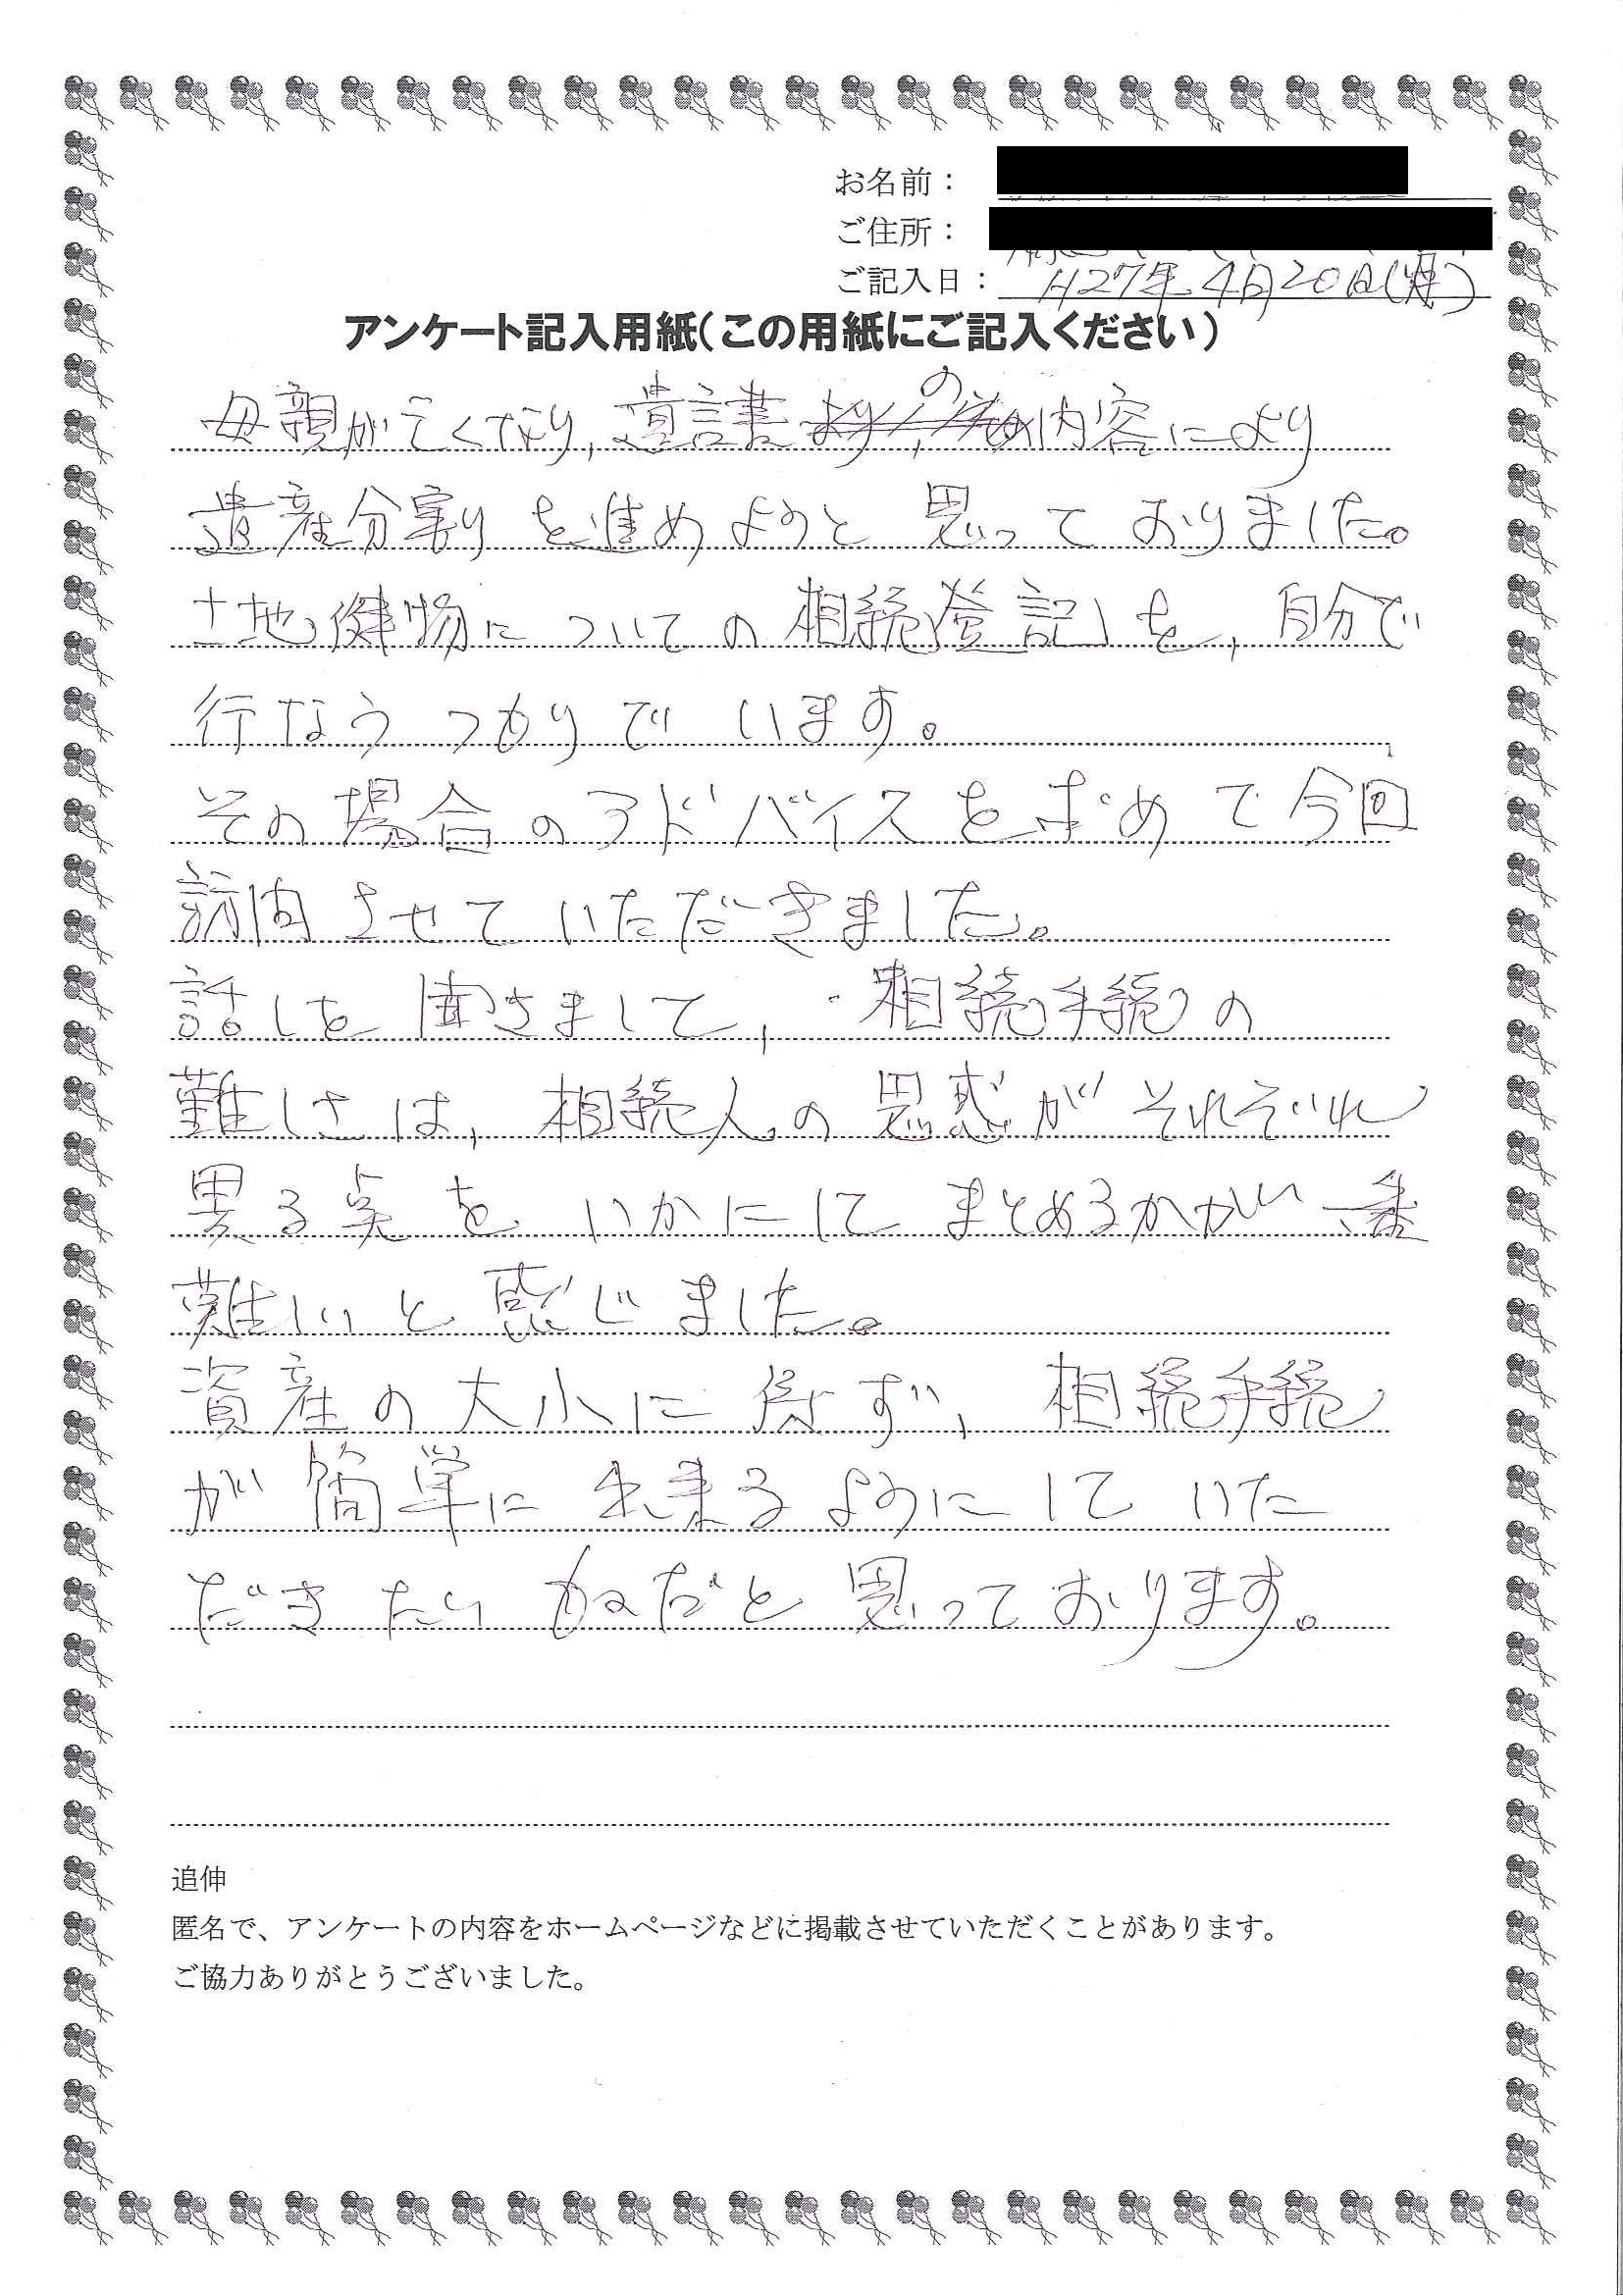 お名前：
ご住所：
ご記入日： H27年4月20日(月)
アンケート記入用紙（この用紙にご記入ください）
母親が亡くなり,遺言書の内容により
遺産分割を進めようと思っておりました。
土地健物についての相続登記を,自分で
行なうつもりでいます。
その場合のアドバイスを求めて今回
訪問させていただきました。
話しを聞きまして,相続手続の
難しさは,相続人の思惑がそれぞれ
異る点をいかにしてまとめるかが一番
難しいと感じました。
資産の大小に係ず,相続手続
が簡単に出来るようにしていた
だきたいものだと思っております。
追伸
匿名で、アンケートの内容をホームページなどに掲載させていただくことがあります。
ご協力ありがとうございました。